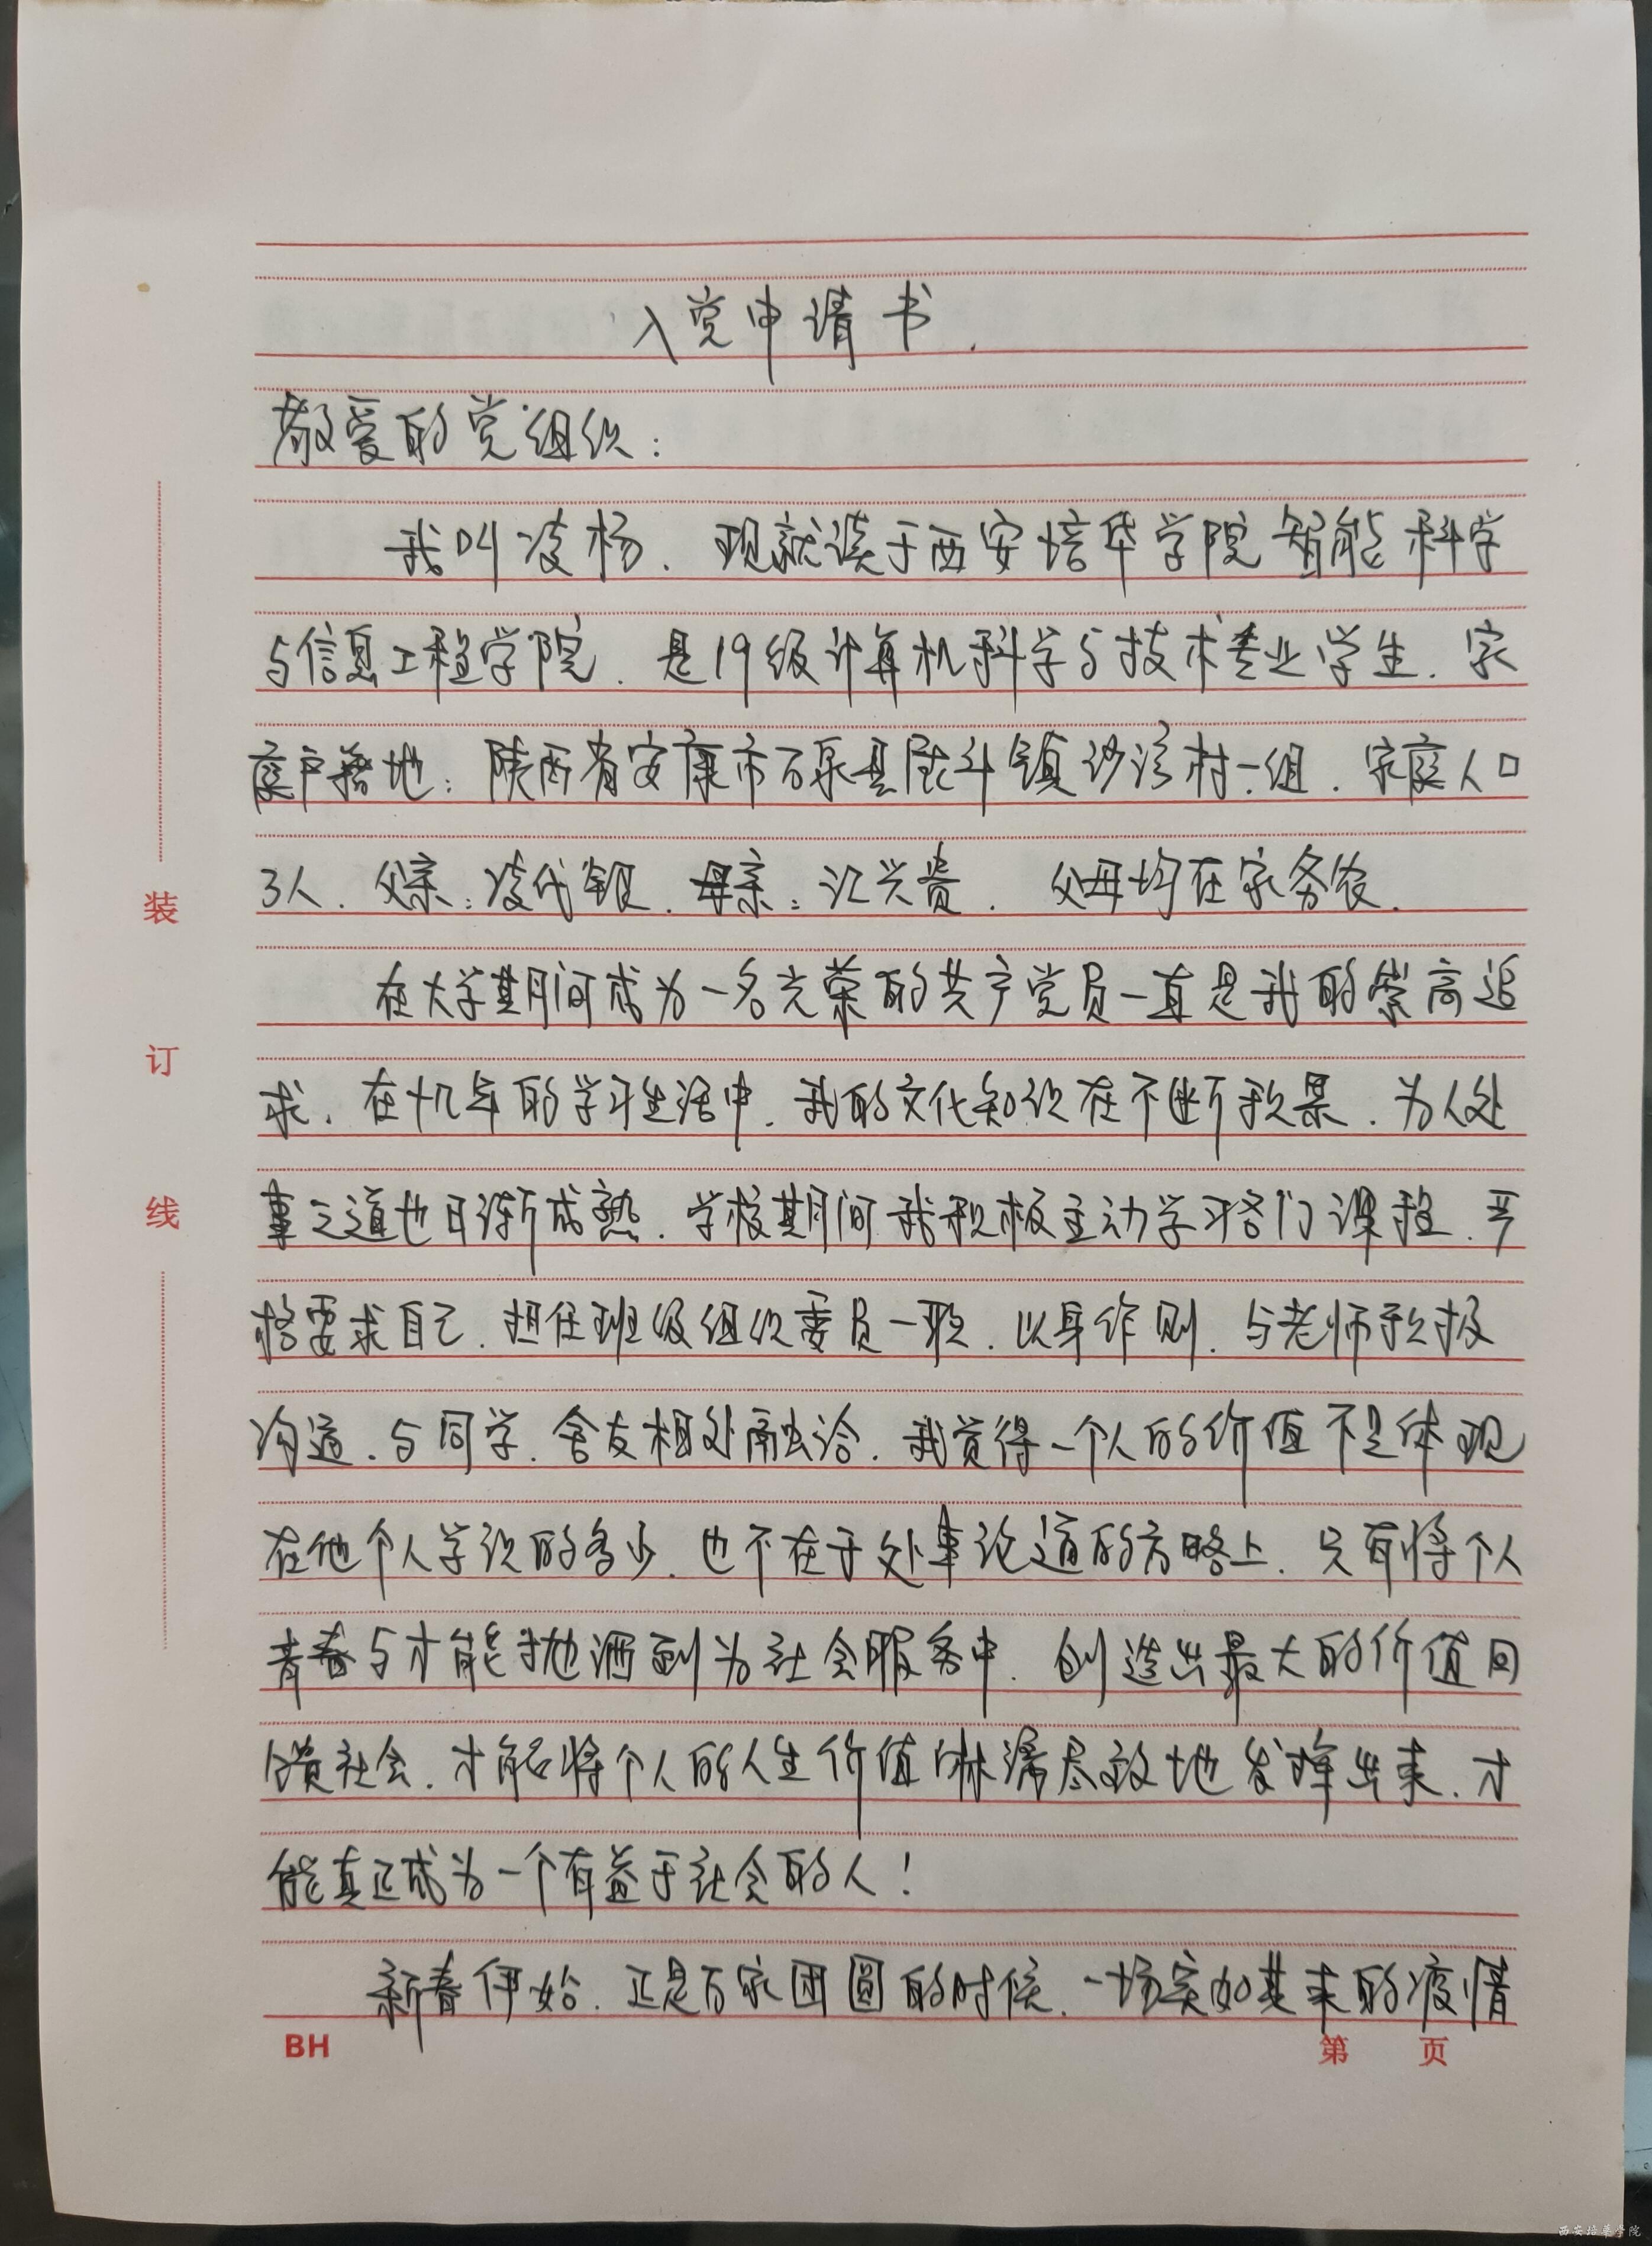 入党申请书.
敬爱的党组织:
我叫凌杨.现就读于西安培华学院智能科学
与信息工程学院.是19级计算机科学与技术专业学生.家
庭户籍地:陕西省安康市石泉县熨斗镇沙湾村一组.家庭人口
3人.父亲:凌代银.母亲:汪兴贵.父母均在家务农.
在大学期间成为一名光荣的共产党员一直是我的崇高追
求.在十几年的学习生活中.我的文化知识在不断积累.为人处
事之道也日渐成熟.学校期间我积极主动学习各门课程.严
格要求自己.担任班级组织委员一职.以身作则.与老师积极
沟通.与同学.舍友相处融洽.我觉得一个人的价值不是体现
在他个人学识的多少.也不在于处事论道的方略上.只有将个人
青春与才能抛洒到为社会服务中.创造出最大的价值回
馈社会.才能将个人的人生价值淋漓尽致地发挥出来.才
能真正成为一个有益于社会的人!
新春伊始.正是万家团圆的时候.一场突如其来的疫情
装
订
线
BH
第 页
西安培华学院